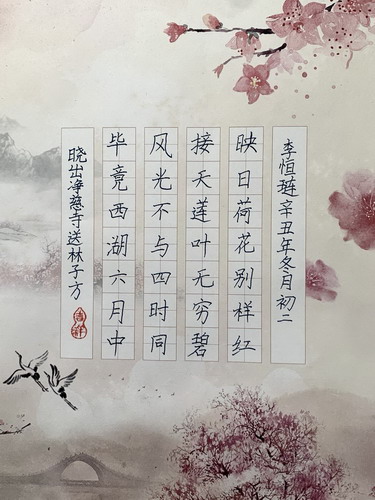 晓出净慈寺送林子方
吉祥
毕竟西湖六月中
风光不与四时同
接天莲叶无穷碧
映日荷花别样红
李恒琏辛丑年冬月初二